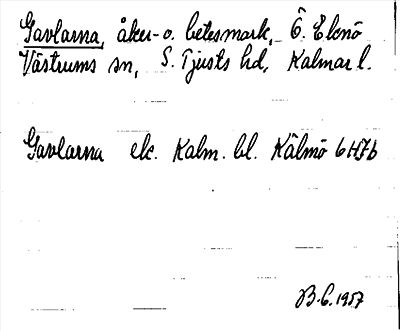 Gavlarna, åker- o. betesmark, Ö. Eknö
Västrums sn, S. Tjusts hd, Kalmar l.
Gavlarna ek. Kalm. bl. Kålmö 6H7b
B.C. 1957